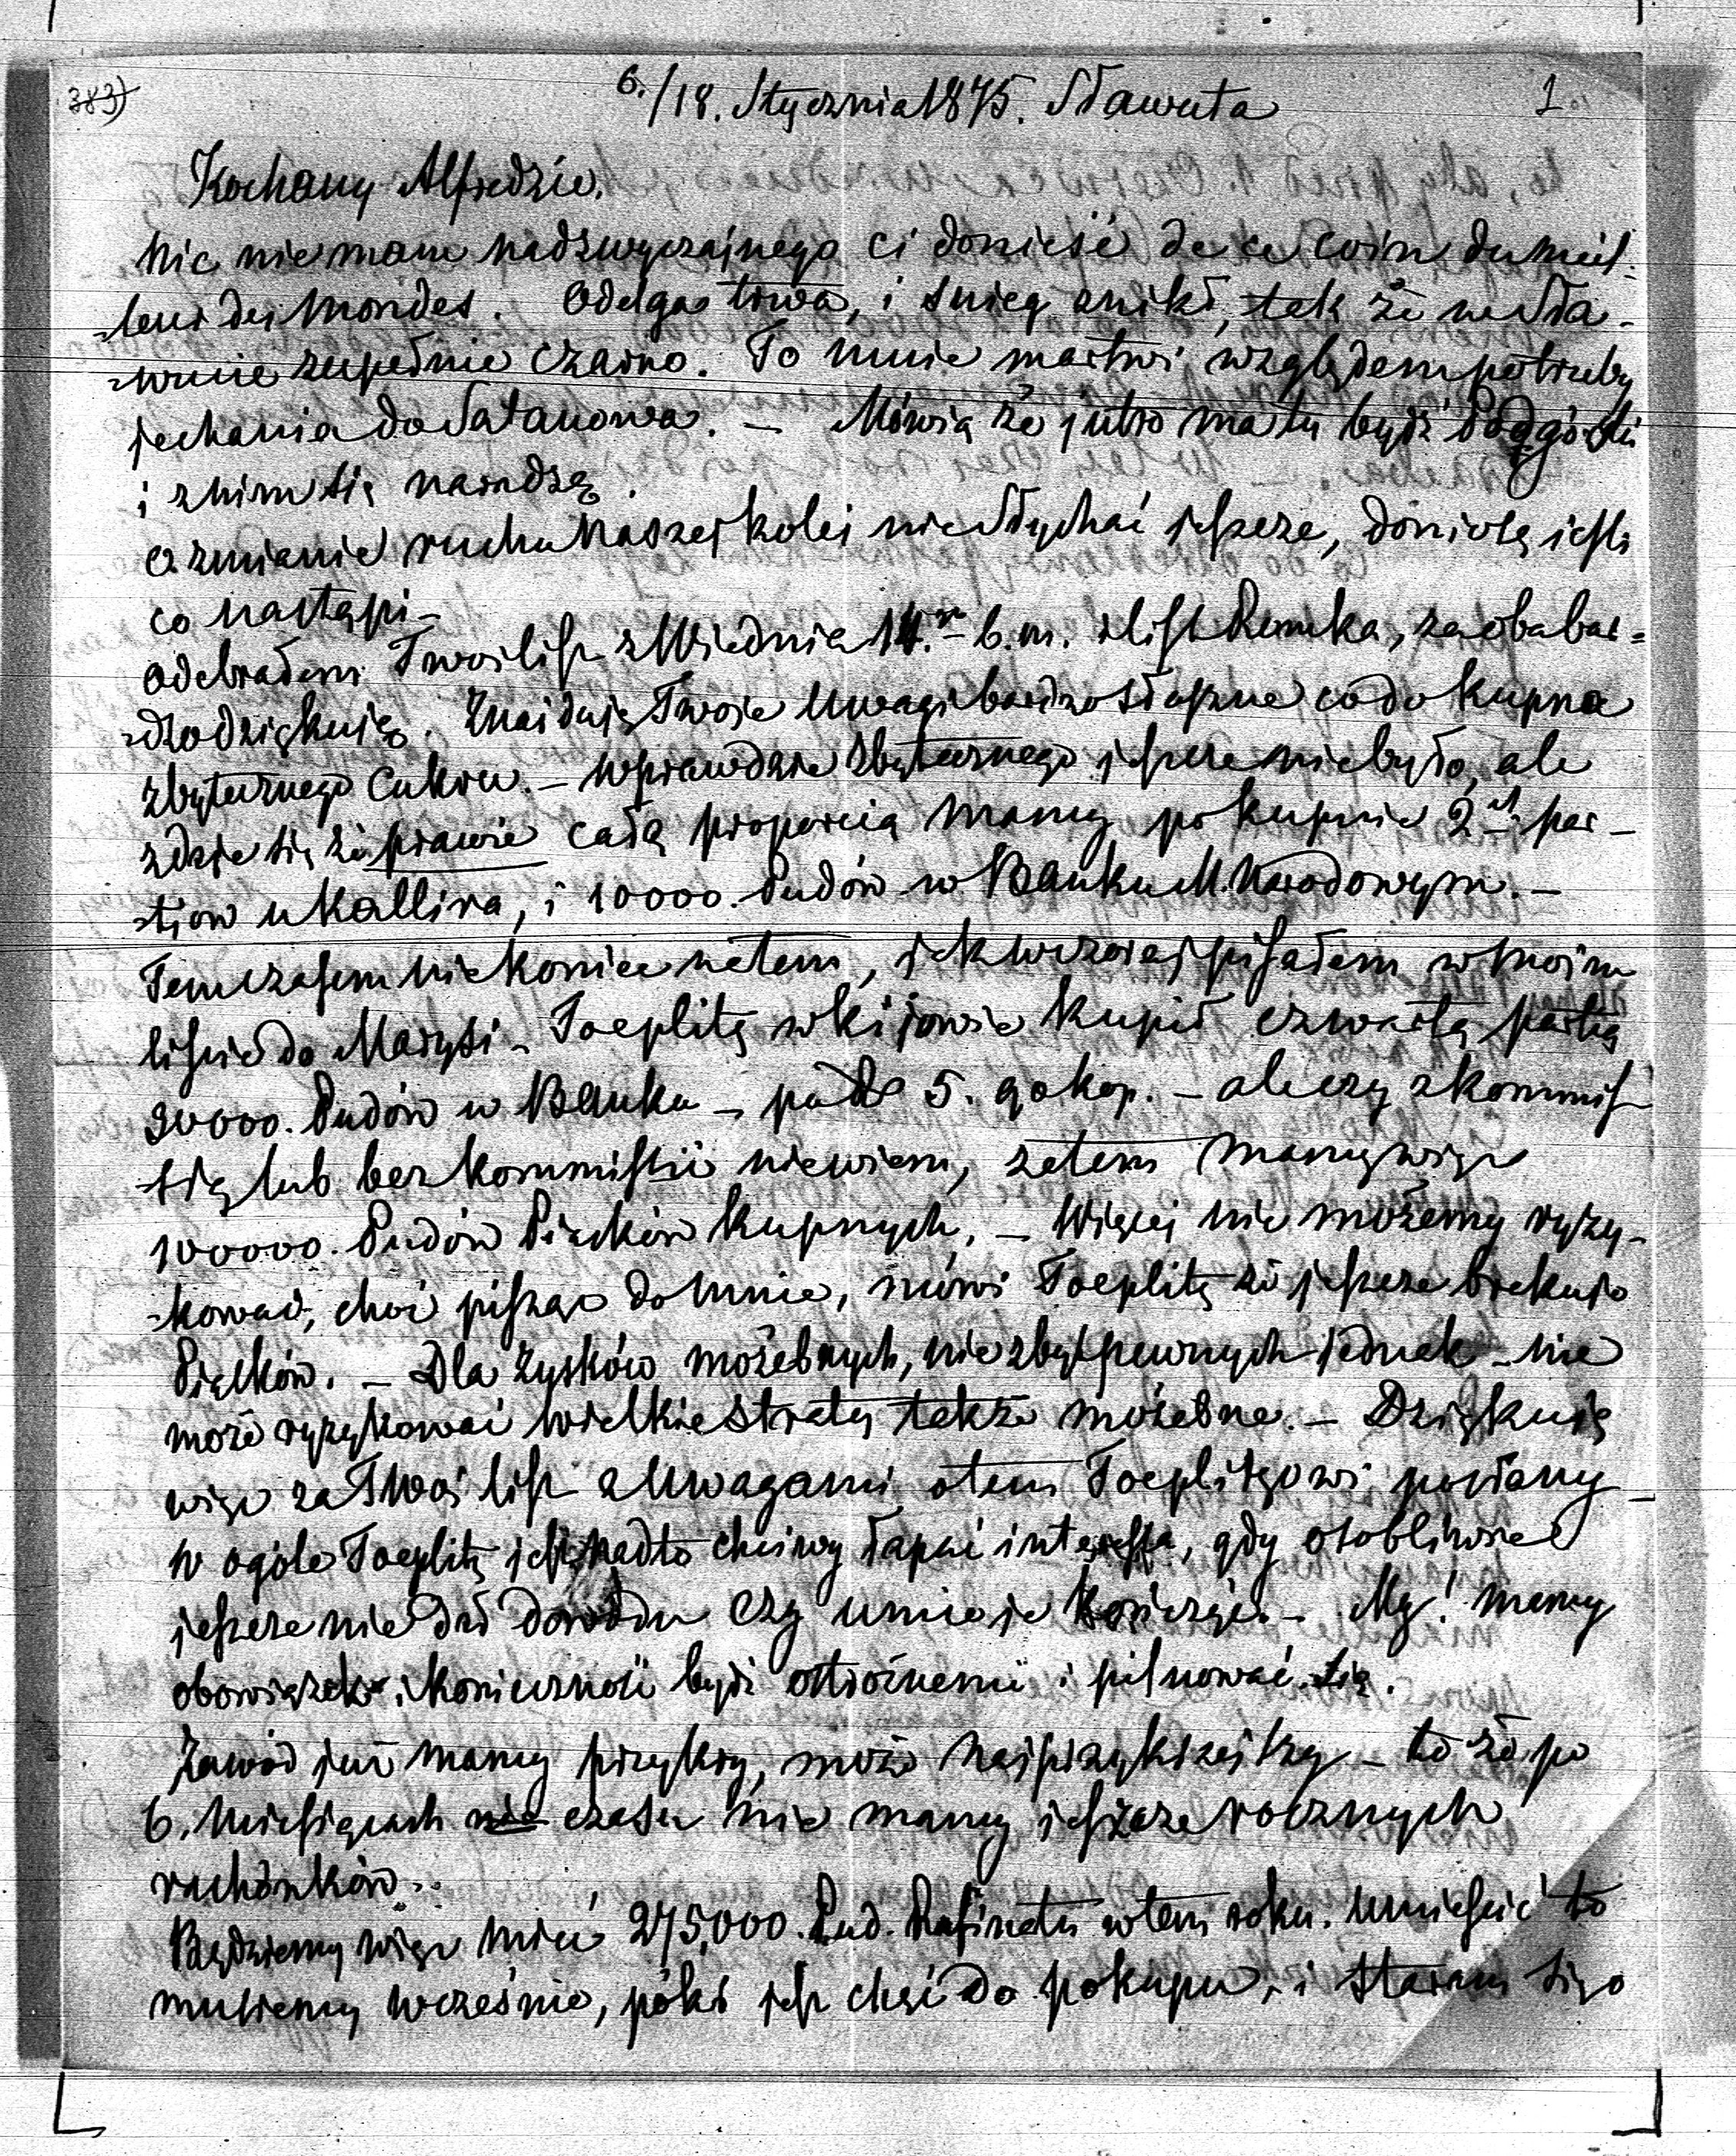 383)
6./18. Stycznia 1875. Sławuta
1
Kochany Alfredzie.
Nic nie mam nadzwyczajnego ci donieść de ce coin du meil-
-leur des mondes. Odelga trwa, i snieg znikł, tak że w Sła-
-wucie zupełnie czarno. To mnie martwi względem potrzeby
jechania do Satanowa. – Mówią że jutro ma tu bydź Podgórski
i z nim się naradzę.
O zmianie ruchu Naszej kolei nie słychać jeszcze, doniosę jeśli
co nastąpi –
Odebrałem Twoi list z Wiednia 14. b.m. i list Rumka, za oba bar=
-dzo dziękuję. Znajduję Twoje Uwagi bardzo słuszne co do kupna
zbytecznego Cukru. – Wprawdzie zbytecznego jeszcze nie było, ale
zdaje się że prawie całą proporcią mamy po kupnie 2 par-
-tiow u Kallira, i 10000. Pudów w Banku M. Narodowym. –
Temczasem nie koniec na tem, jak wczoraj pisałem w moim
liście do Marysi – Toeplitz w Kijowie kupił czwartą partię
30000. Pudów w Banku – po Rs 5. 90 kop. – ale czy z kommis-
-sią lub bez kommissii nie wiem, zatem mamy więc
100000. Pudów Piasków kupnych. – Więcej nie możemy ryzy-
-kować, choć pisząc do mnie, mówi Toeplitz że jeszcze brakuje
Piasków. – Dla Zysków możebnych, nie zbyt pewnych jednak – nie
może ryzykować wielkie straty także możebne. – Dziękuję
więc za Twój list z Uwagami, o tem Toeplitzowi posłany –
W ogóle Toeplitz jest nadto chciwy łapać interessa, gdy osobliwie
jeszcze nie dał dowodu czy umie je kończyć. – My! mamy
obowiązek i konieczność bydź ostrożnemi i pilnować się.
Zawód już mamy przykry, może najprzykrzejszy – to że po
6. Miesiącach nie czasu nie mamy jeszcze rocznych
rachónków.
Będziemy więc mieć 275,000. Pud. Rafinatu w tem roku. Umieścić to
musiemy wcześnie, póki jest chęć do pokupu, i staram się o